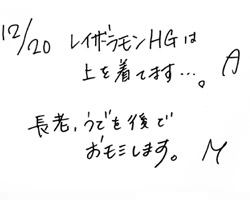 12/20 レイザラモンHGは
上を着てます…。 A
長老,うでを後で
おモミします。 M